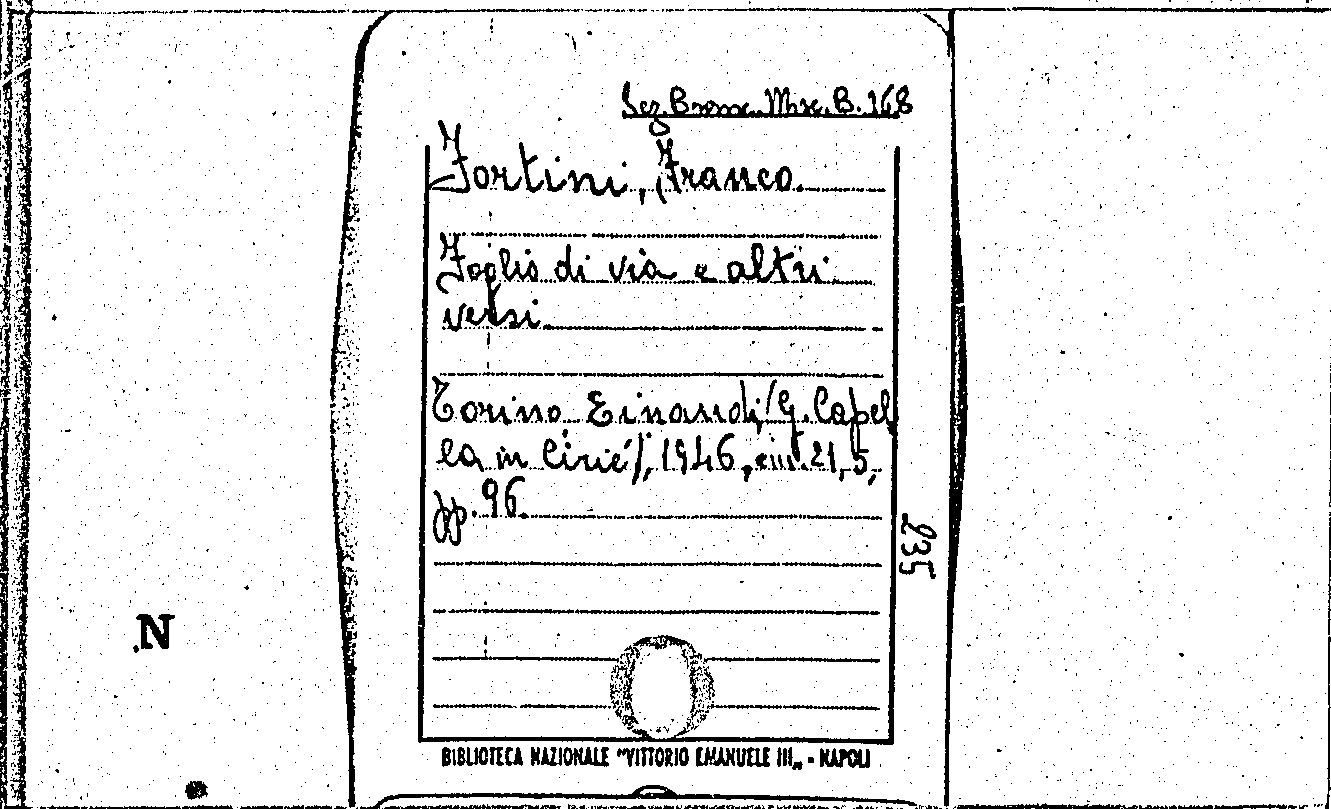 Sez. Bronx. Misc. B. 168
Fortini, Franco.
Foglio di via e altri
versi.
Torino Einaudi /G. Capel
la in Cirié/, 1946, cm. 21,5,
pp. 96.
235
N
BIBLIOTECA NAZIONALE "VITTORIO EMANUELE III„ - NAPOLI